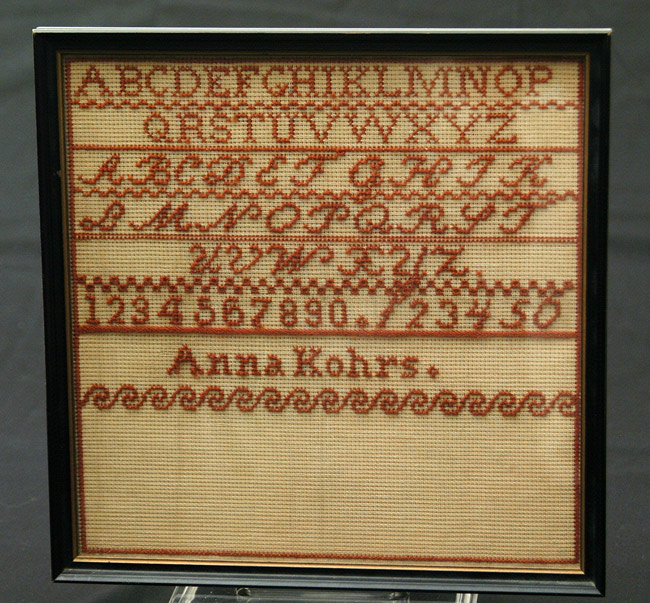 ABCDEFGHIKLMNOP
QRSTUVWXYZ
ABCDEFGHIK
LMNOPQRST
UVWXYZ.
1234567890.123450
Anna Kohrs.